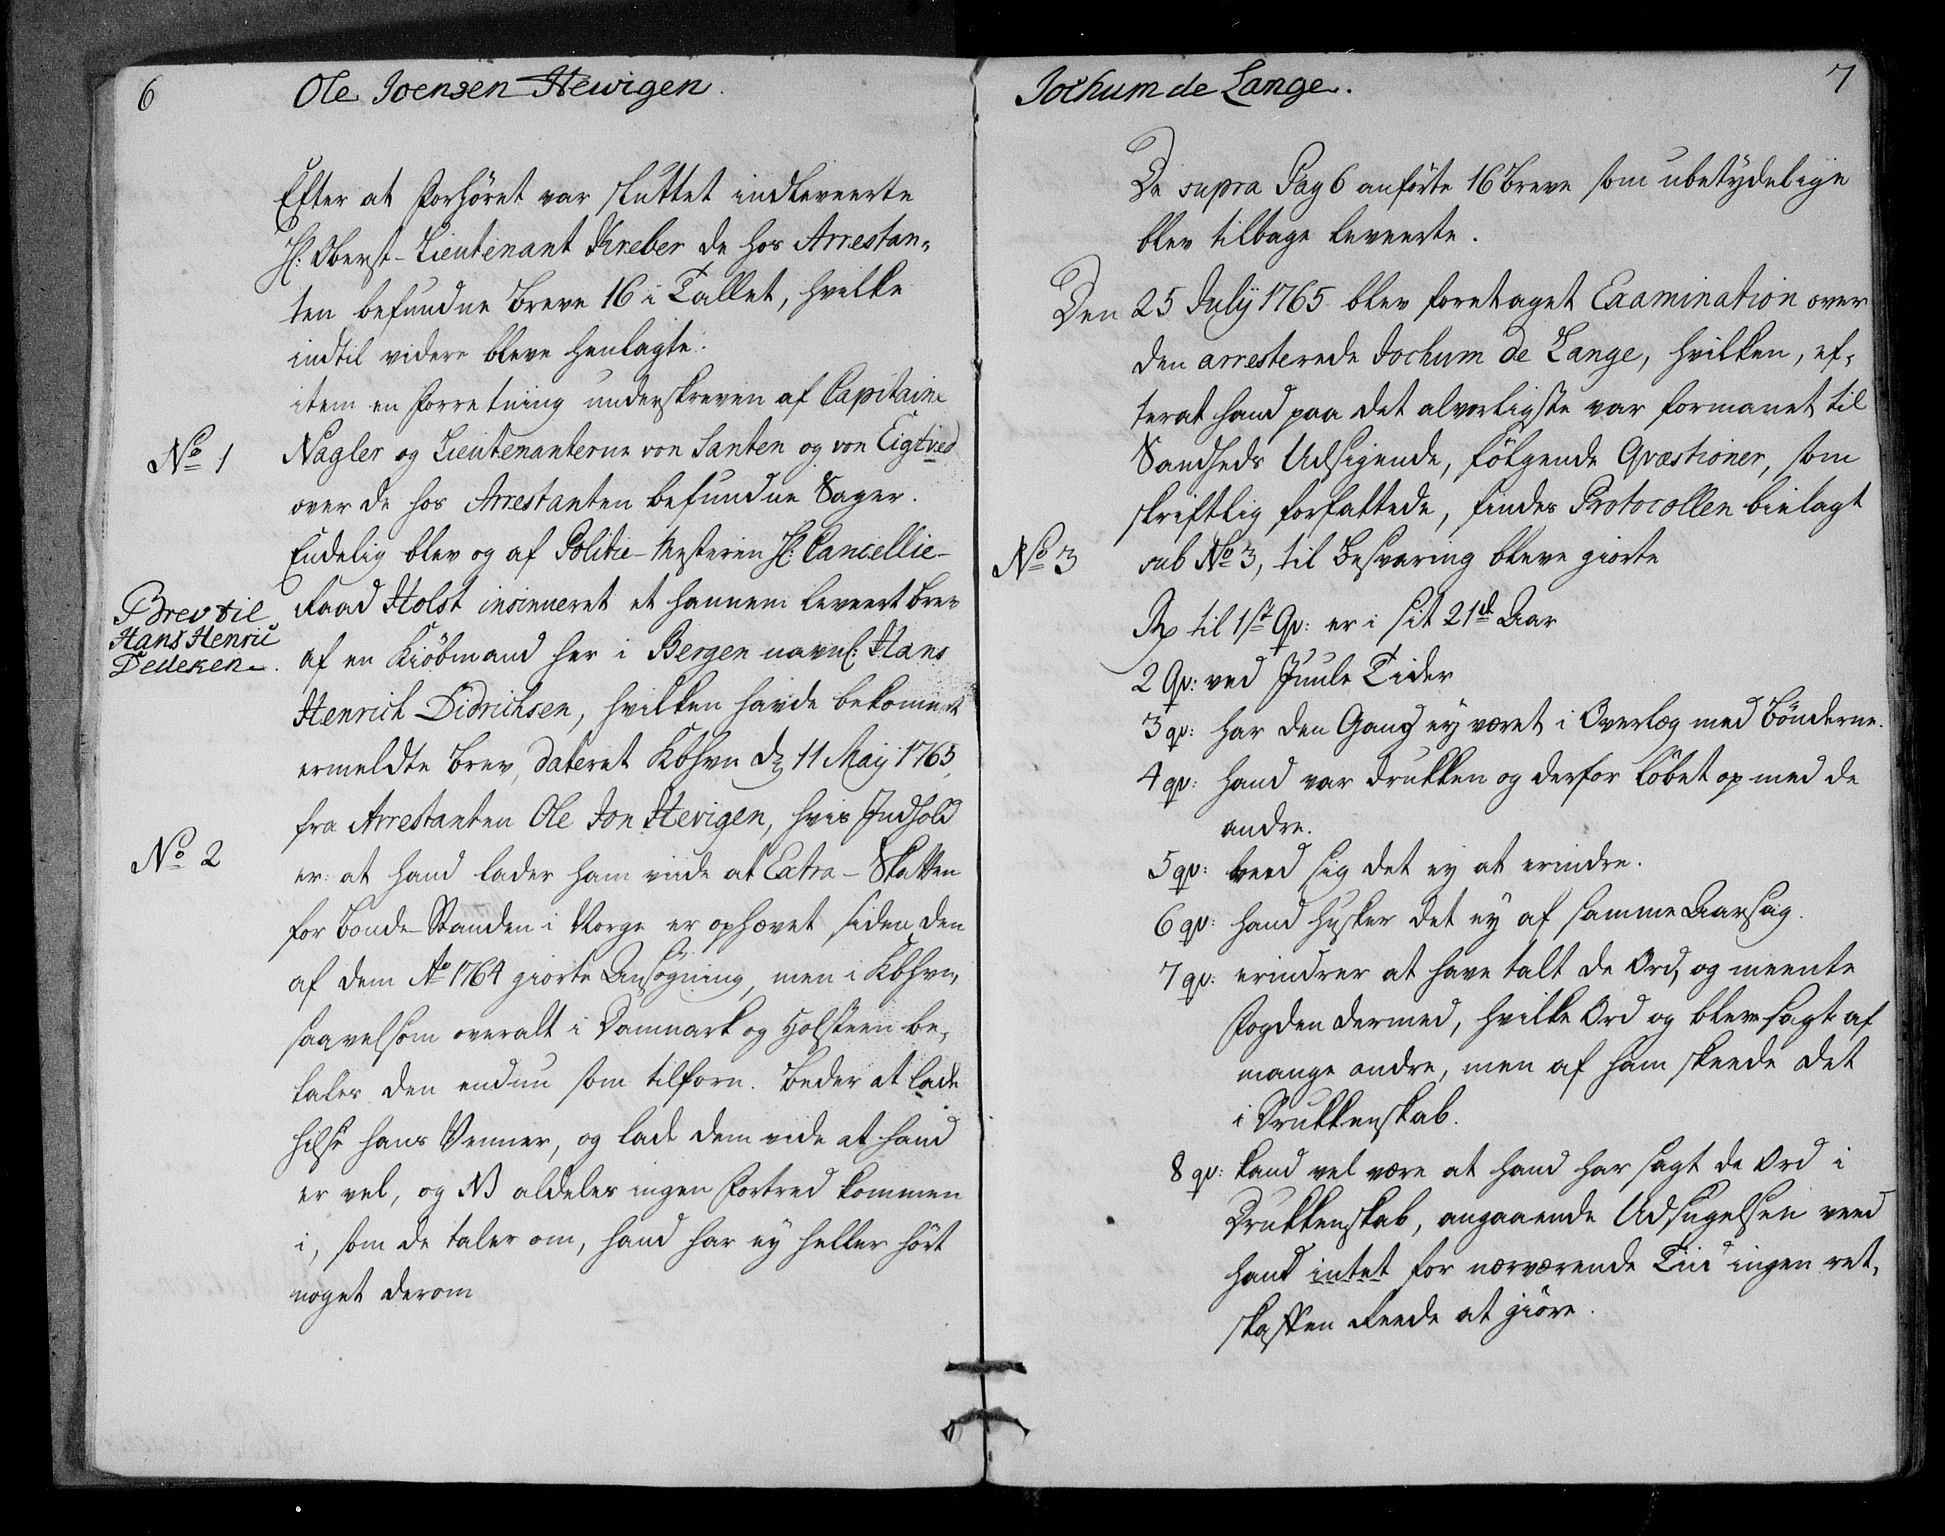 6
Ole Joensen Hewigen.
Efter at Forhöret var sluttet indleveerte
H: Oberst-Lieutenant Kreber de hos Arrestan=
ten befundne Breve 16 i Tallet, hvilke
indtil videre bleve henlagte.
item en Forretning underskreven af Capitaine
No 1
Nagler og Lieutenanterne von Santen og von Eigtved
over de hos Arrestanten befundne Sager.
Endelig blev og af Politie-Mesteren H: Cancellie-
Brev til
Hans Henric
Dedeken.
Raad Holst insinueret et hannem leveert Brev
af en Kiöbmand her i Bergen navnl: Hans
Henrich Didrichsen, hvilken havde bekommet
ermeldte Brev, dateret Kbhvn d. 11 May 1765,
fra Arrestanten Ole Jon Hevigen, hvis Indhold
No 2
er: at hand lader ham viide at Extra-Skatten
for Bonde-Standen i Norge er ophævet siden den
af dem Ao 1764 giorte Ansögning, men i Kbhvn,
saavelsom overalt i Danmark og Holsteen be=
tales den endnu som tilforn. Beder at lade
hilse hans Venner, og lade dem vide at hand
er vel, og NB aldeles ingen Fortred kommen
i, som de taler om, hand har ey heller hört
noget derom
7
Jochum de Lange.
De supra Pag 6 anförte 16 Breve som ubetydelige
blev tilbage leveerte.
Den 25 July 1765 blev foretaget Examination over
den arresterede Jochum de Lange, hvilken, ef=
terat hand paa det alvorligste var formanet til
Sandheds Udsigende, fölgende Qvæstioner, som
skriftlig forfattede, findes Protocollen bielagt
No 3
sub No 3, til Besvaring bleve giorte
Rp til 1st Qv: er i sit 21de Aar
2 Qv: ved Juule Tider
3 qv: har den Gang ey været i Overlæg med Bönderne.
4 qv: hand var drukken og derfor löbet op med de
andre.
5 qv: veed sig det ey at erindre.
6 qv: hand husker det ey af samme Aarsag.
7 qv: erindrer at have talt de Ord, og meente
Fogden dermed, hvilke Ord og bleve sagt af
mange andre, men af ham skeede det
i Drukkenskab.
8 qv: kand vel være at hand har sagt de Ord i
Drukkenskab, angaaende Udsugelsen veed
hand intet for nærværende Tiid ingen ret=
skaffen Reede at giöre.